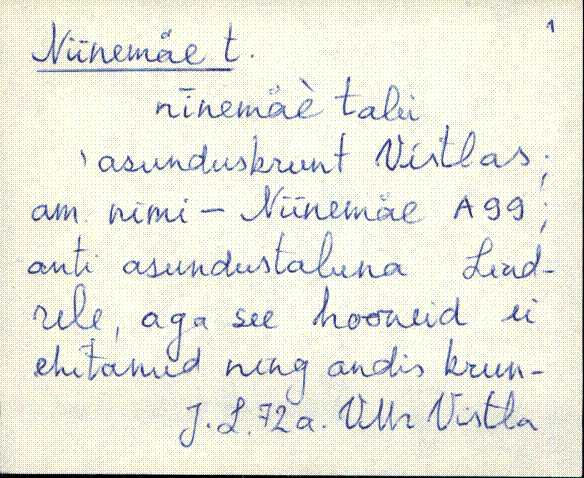 1
Niinemäe t.
nīnemäè talu
ˋasunduskrunt Vistlas;
am. nimi – Niinemäe A99;
anti asundustaluna Lind-
rele, aga see hooneid ei
ehitanud ning andis krun-
J.L. 72a. VMr Vistla